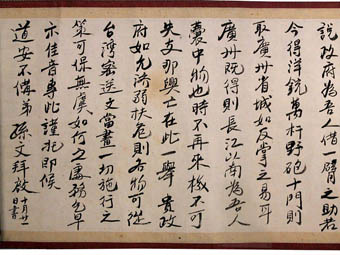 說政府為吾人借一臂之助若
今得洋銃萬杆野砲十門則
取廣州省城如反掌之易耳
廣州既得則長江以南為吾人
囊中物也時不再來機不可
失支那興亡在此一舉貴政
府如允濟弱扶危則各物可從
台灣密送之當畫一切施行之
策可保無虞如何之處務乞早
示佳音專此謹託即候
道安不備弟孫文拜啟
十月廿一
日書